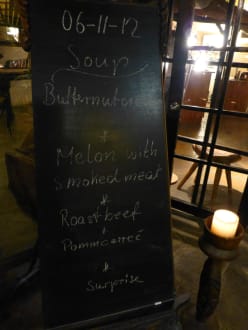 06-11-12
Soup
Butternut
+
Melon with
smoked meat
+
Roastbeef
+
+
Surprise